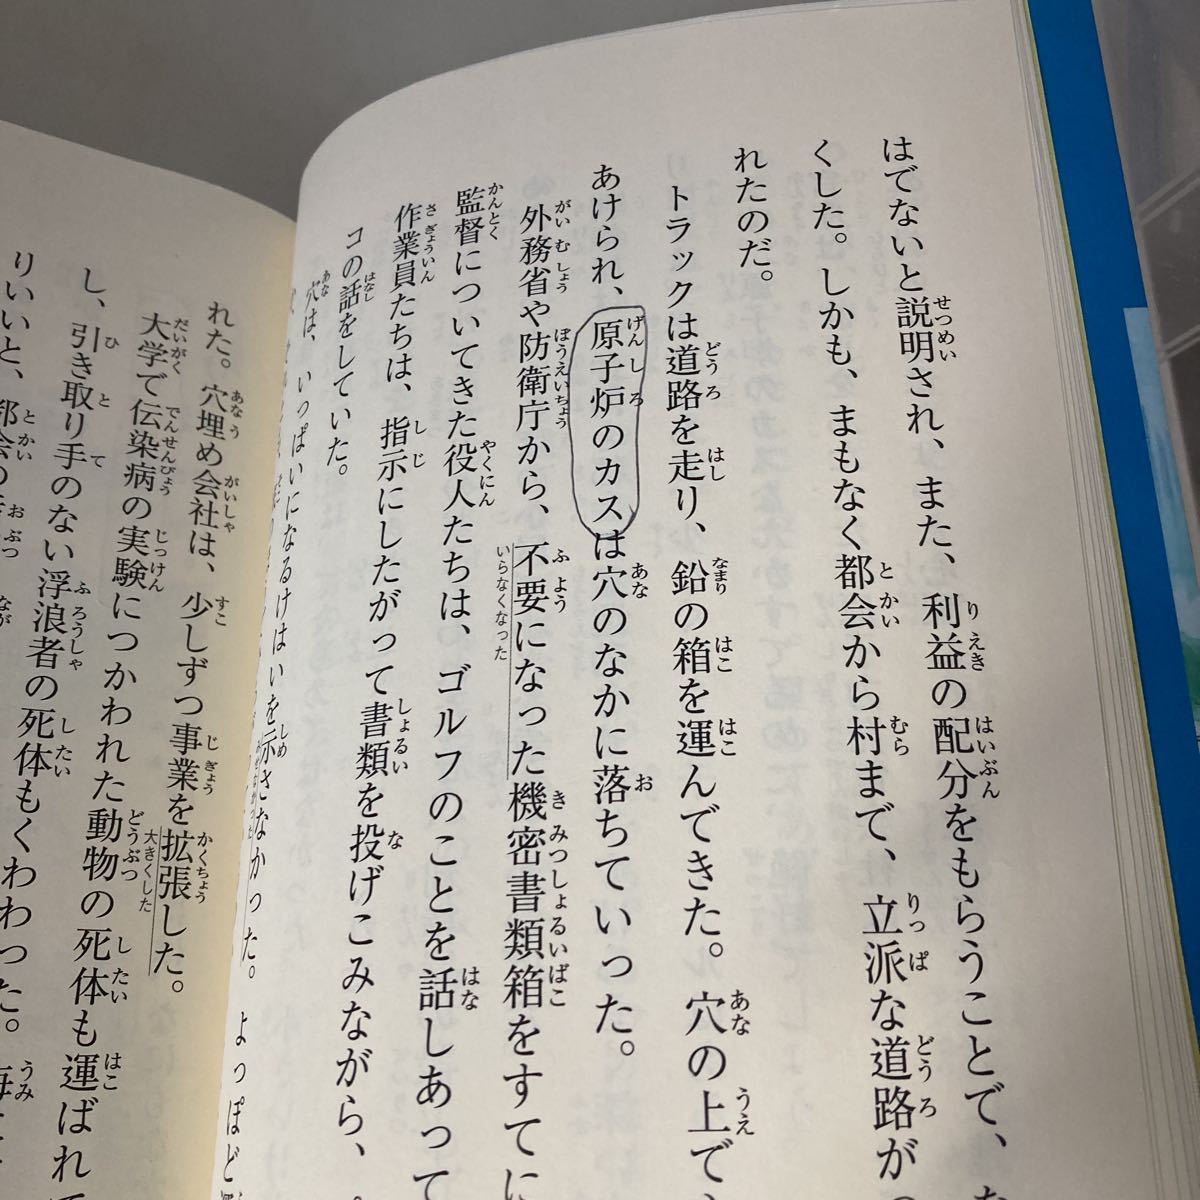 はでないと説明され、また、利益の配分をもらうことで、な
くした。しかも、まもなく都会から村まで、立派な道路が
れたのだ。
トラックは道路を走り、鉛の箱を運んできた。穴の上で
あけられ、原子炉のカスは穴のなかに落ちていった。
外務省や防衛庁から、不要になった機密書類箱をすてに
いらなくなった
監督についてきた役人たちは、ゴルフのことを話しあって
作業員たちは、指示にしたがって書類を投げこみながら、
コの話をしていた。
穴は、いっぱいになるけはいを示さなかった。よっぽど
れた。穴埋め会社は、少しずつ事業を拡張した。
大きくした
大学で伝染病の実験につかわれた動物の死体も運ばれ
し、引き取り手のない浮浪者の死体もくわわった。
りいいと、都会の